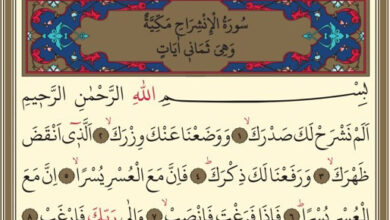 سُورَةُ الْاِنْشِرَاحِ مَكِّيَّةٌ
وَهِيَ ثَمَانِي اٰيَاتٍ
بِسْــــــمِ اللّٰهِ الرَّحْمٰنِ الرَّحِيمِ
اَلَمْ نَشْرَحْ لَكَ صَدْرَكَ ﴿١﴾ وَوَضَعْنَا عَنْكَ وِزْرَكَ ﴿٢﴾ اَلَّذٖٓي اَنْقَضَ
ظَهْرَكَ ﴿٣﴾ وَرَفَعْنَا لَكَ ذِكْرَكَ ﴿٤﴾ فَاِنَّ مَعَ الْعُسْرِ يُسْرًا ﴿٥﴾ اِنَّ مَعَ
الْعُسْرِ يُسْرًا ﴿٦﴾ فَاِذَا فَرَغْتَ فَانْصَبْ ﴿٧﴾ وَاِلٰى رَبِّكَ فَارْغَبْ ﴿٨﴾